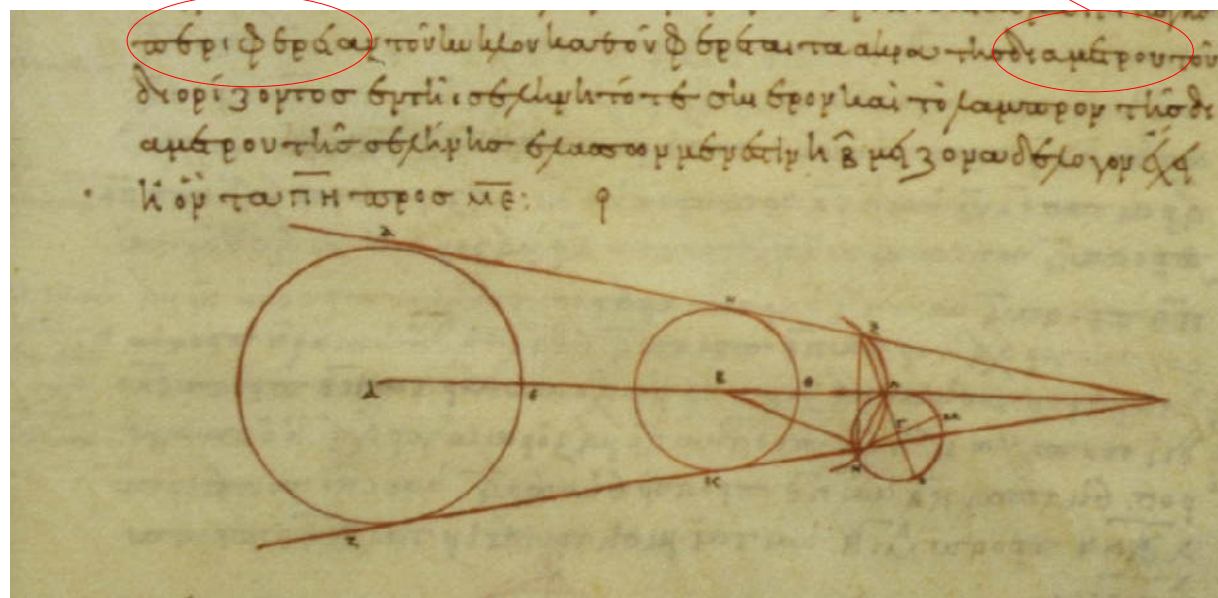 περιφέρειαν τοῦ κύκλου καθ' οὗ φέρεται τὰ ἄκρα τῆς διαμέτρου τοῦ
διορίζοντος ἐν τῆι σελήνηι τό τε σκιερὸν καὶ τὸ λαμπρὸν τῆς δι
αμέτρου τῆς σελήνης ἐλάσσων μέν ἐστιν ἢ β̄ μείζονα δὲ λόγον ἔχει
ἢ ὃν τὰ π̄η̄ πρὸς μ̄ε̄:
Δ
Η
Α
Β
Θ
Γ
Ζ